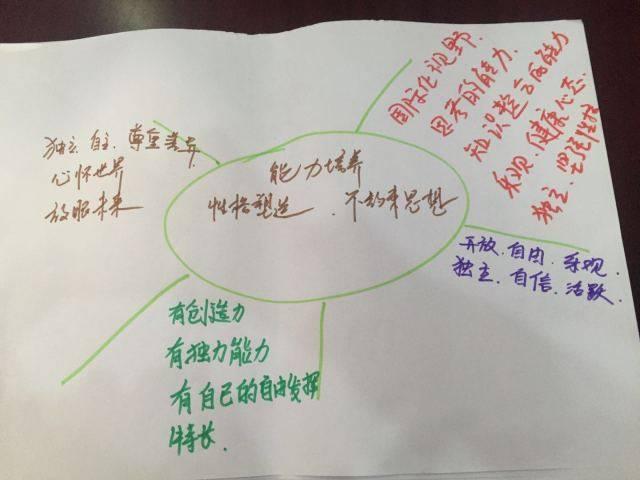 独立、自主、尊重差异
心怀世界
放眼未来
能力培养
性格塑造、不约束思想
国文化视野.
思考的能力.
知识整合的能力
乐观、健康心态.
独立、坚强性格
开放、自由、乐观.
独立、自信、活跃.
有创造力
有独力能力
有自己的自由发挥
特长.